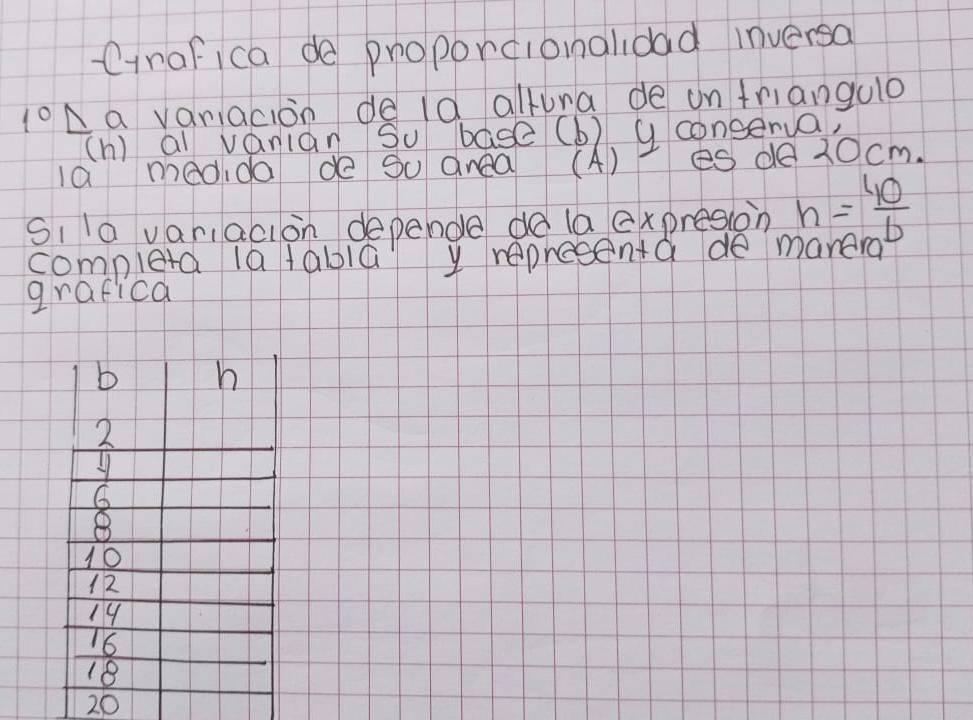 Grafica de proporcionalidad inversa
1° La variaciòn de la altura de un triangulo
(h) al variar su base (b) y conserva,
la medida de su area (A) es de 20cm.
Si la variaciòn depende de la expresiòn h = 40/b
completa la tabla y representa de manera
grafica
b h
2
4
6
8
10
12
14
16
18
20